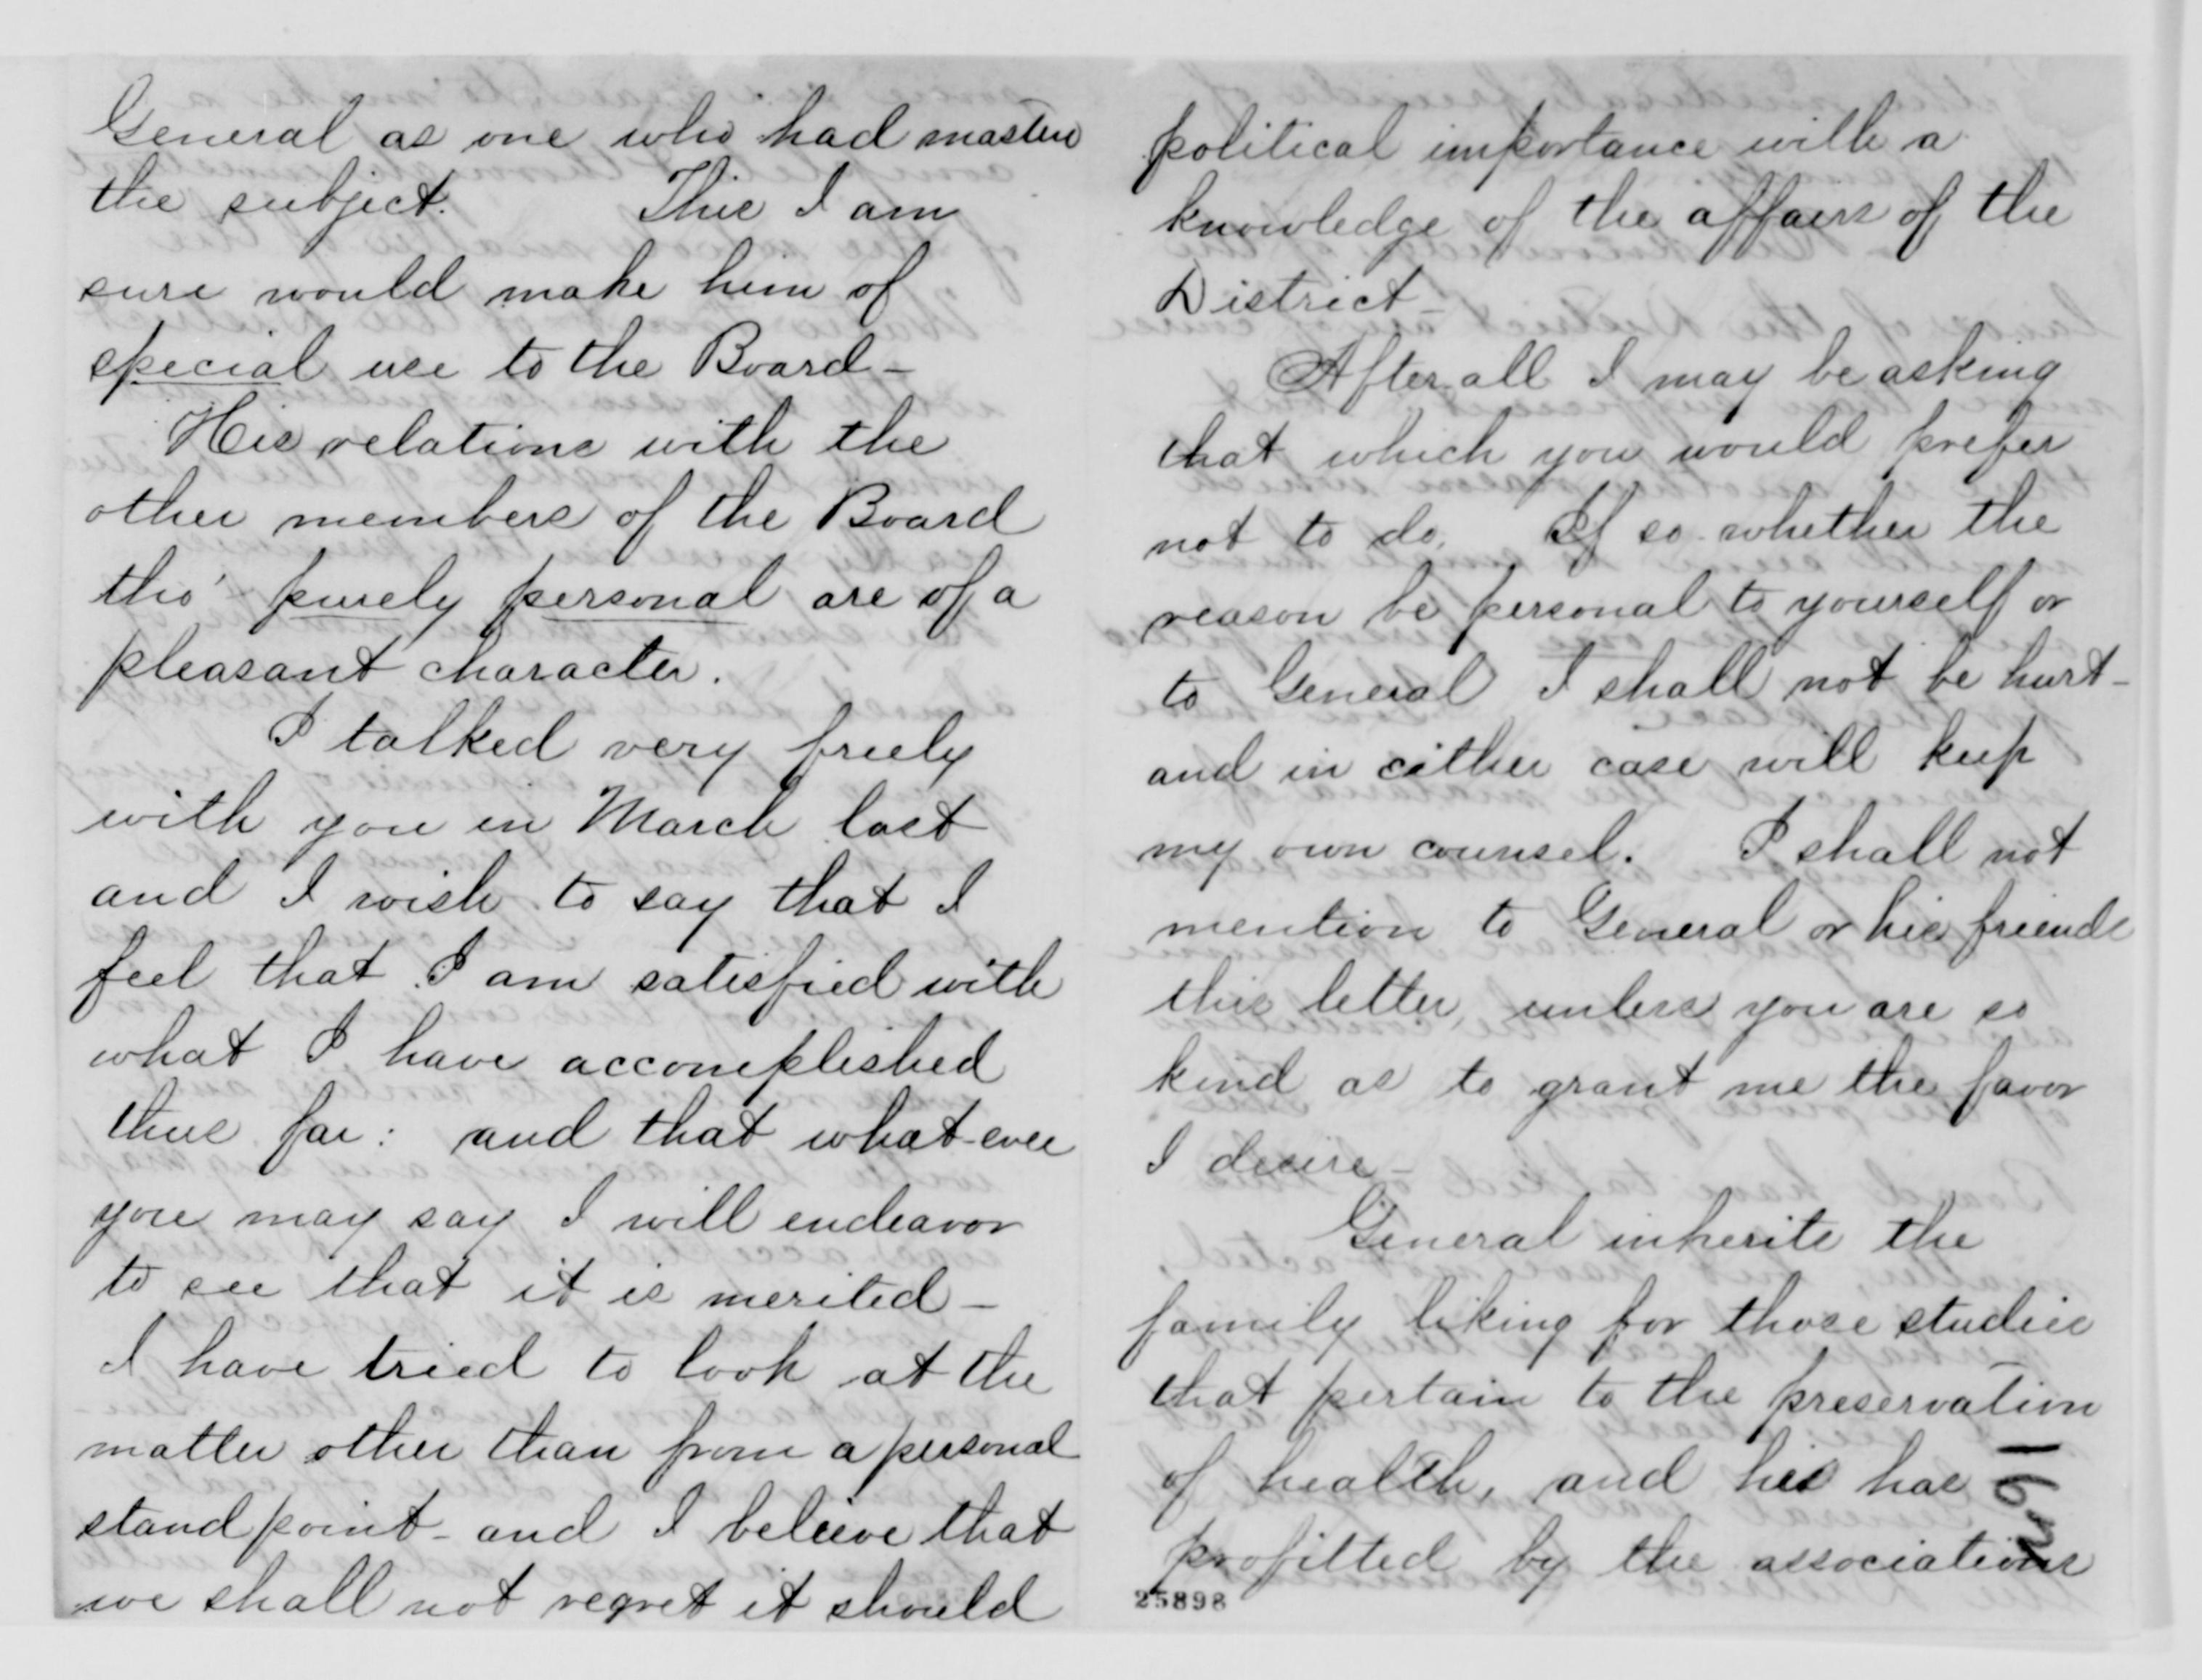 General as one who had master
the subject. This I am
sure would make him of
special use to the Board -
His relations with the
other members of the Board
tho' - purely personal are of a
pleasant character.
I talked very freely
with you in March last
and I wish to say that I
feel that I am satisfied with
what I have accomplished
thus far: and that what-ever
you may say I will endeavor
to see that it is merited -
I have tried to look at the
matter other than from a personal
standpoint - and I believe that
we shall not regret it should
political importance with a
knowledge of the affairs of the
District -
After all I may be asking
that which you would prefer
not to do. If so whether the
reason be personal to yourself or
to General I shall not be hurt -
and in either case will keep
my own counsel. I shall not
mention to General or his friends
this letter, unless you are so
kind as to grant me the favor
I desire -
General inherits the
family liking for those studies
that pertain to the preservation
of health, and has
profitted by the associations
25898